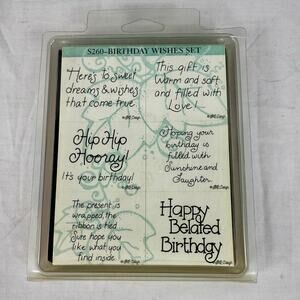 S260-BIRTHDAY WISHES SET
Here's to Sweet
dreams & wishes
that come true.
This gift is
Warm and soft
and filled with
Love!
Hip Hip
Hooray!
It's your birthday!
Hoping your
birthday is
filled with
Sunshine and
Laughter.
The present is
wrapped, the
ribbon is tied
Sure hope you
like what you
find inside.
Happy
Belated
Birthday